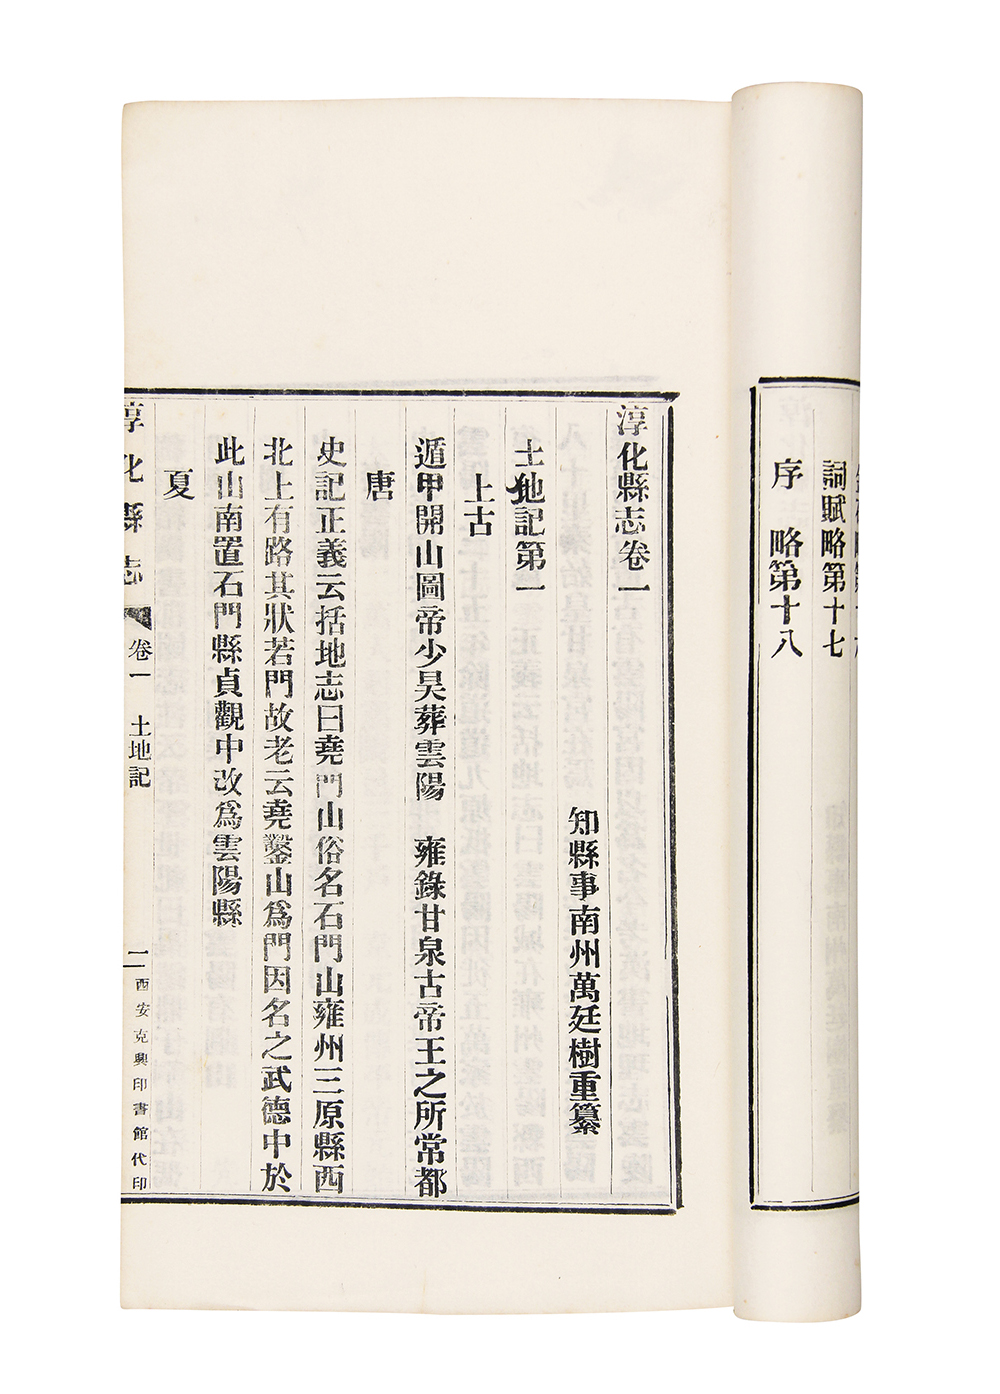 詞賦略第十七
序　略第十八
淳化縣志卷一
知縣事南州萬廷樹重纂
土地記第一
上古
遁甲開山圖帝少昊葬雲陽　雍錄甘泉古帝王之所常都
唐
史記正義云括地志曰堯門山俗名石門山雍州三原縣西
北上有路其狀若門故老云堯鑿山爲門因名之武德中於
此山南置石門縣貞觀中改爲雲陽縣
夏
淳化縣志　卷一　土地記　一　西安克興印書館代印